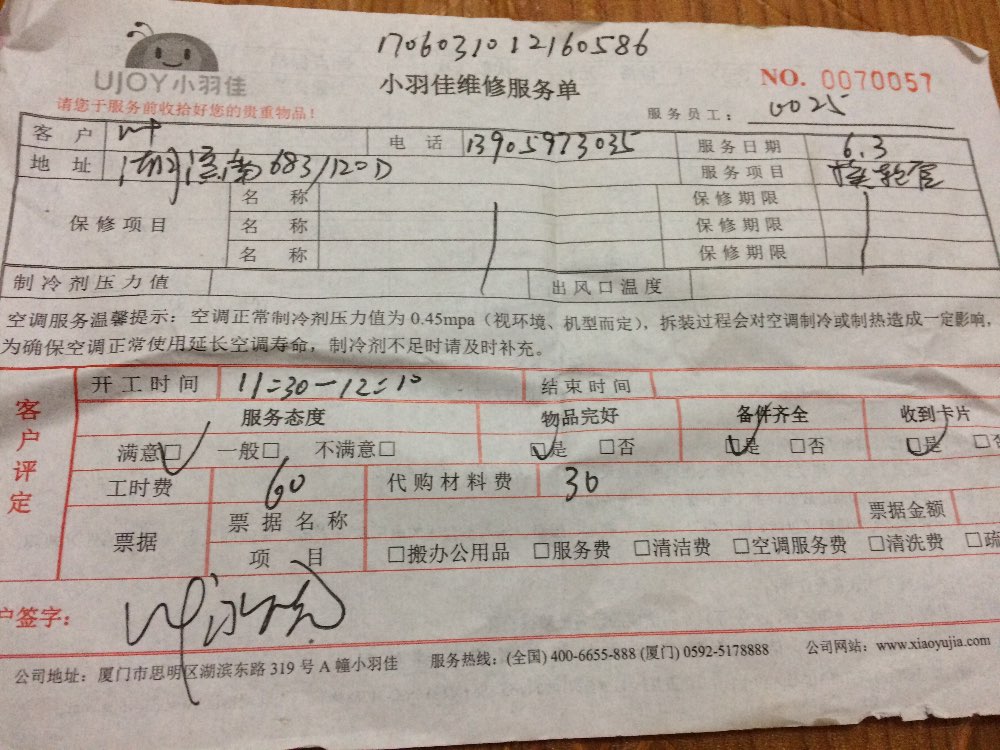 1706031012160586
UJOY小羽佳
小羽佳维修服务单
NO. 0070057
请您于服务前收拾好您的贵重物品！
服务员工： 0025
客 户 叶 电 话 13905973035 服务日期 6.3
地 址 湖滨南683/120D 服务项目
保修项目 名 称 保修期限
名 称 保修期限
名 称 保修期限
制冷剂压力值 出风口温度
空调服务温馨提示：空调正常制冷剂压力值为 0.45mpa（视环境、机型而定），拆装过程会对空调制冷或制热造成一定影响，
为确保空调正常使用延长空调寿命，制冷剂不足时请及时补充。
客户评定
开工时间 11=30-12=10 结束时间
服务态度 物品完好 备件齐全 收到卡片
满意□ 一般□ 不满意□ □是 □否 □是 □否 □是 □否
工时费 60 代购材料费 30
票据 票据名称 票据金额
项 目 □搬办公用品 □服务费 □清洁费 □空调服务费 □清洗费 □疏
户签字：
公司地址：厦门市思明区湖滨东路 319 号 A 幢小羽佳 服务热线：(全国) 400-6655-888 (厦门) 0592-5178888 公司网站：www.xiaoyujia.com